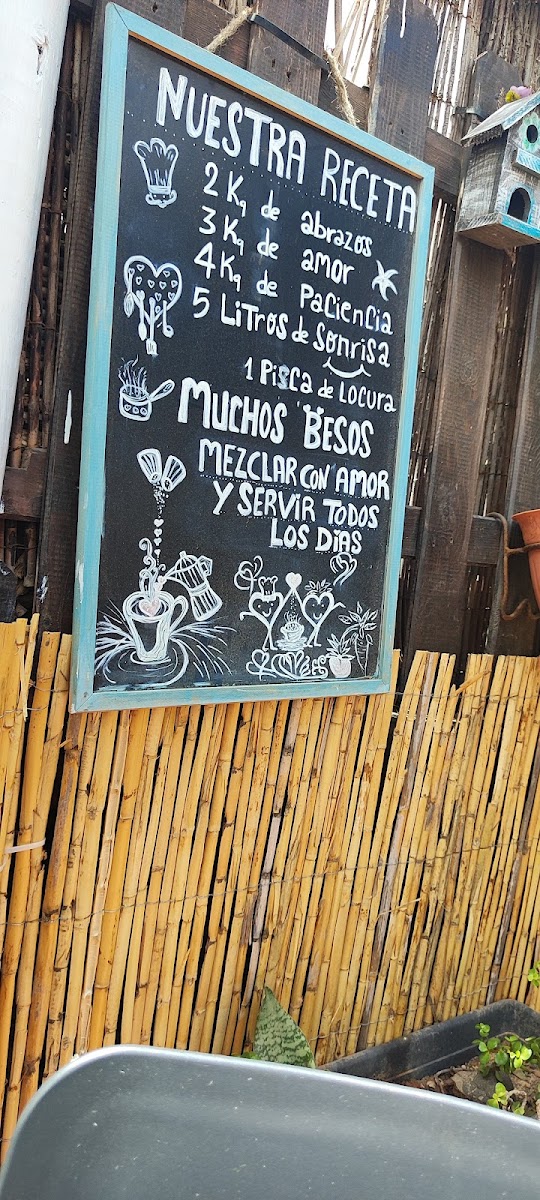 NUESTRA RECETA
2 Kg de abrazos
3 Kg de amor
4 Kg de paciencia
5 Litros de Sonrisa
1 Pisca de locura
MUCHOS BESOS
MEZCLAR CON AMOR
Y SERVIR TODOS
LOS DÍAS